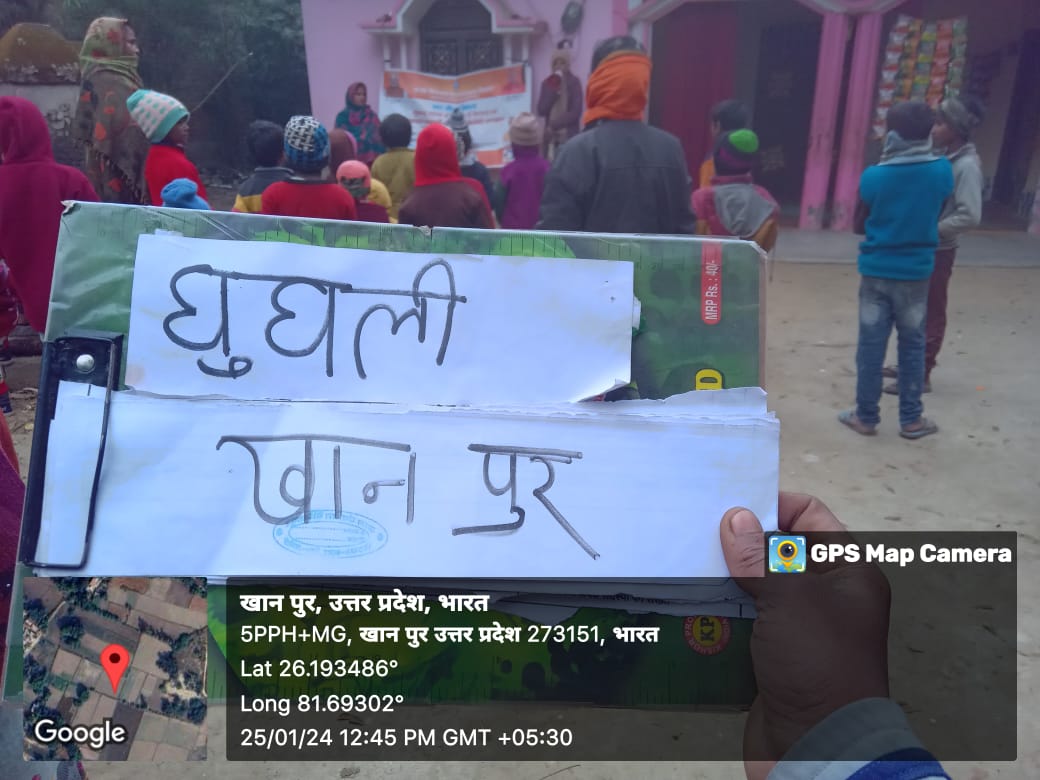 घुघली
खान पुर
MRP Rs. : 40/-
GPS Map Camera
खान पुर, उत्तर प्रदेश, भारत
5PPH+MG, खान पुर उत्तर प्रदेश 273151, भारत
Lat 26.193486°
Long 81.69302°
25/01/24 12:45 PM GMT +05:30
Google